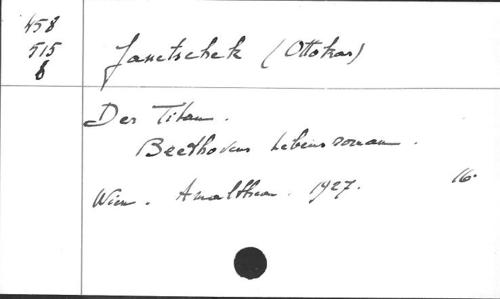 458
515
b
Janetschek (Ottokar)
Der Titan.
Beethovens Lebensroman.
Wien. Amalthea. 1927. 16°